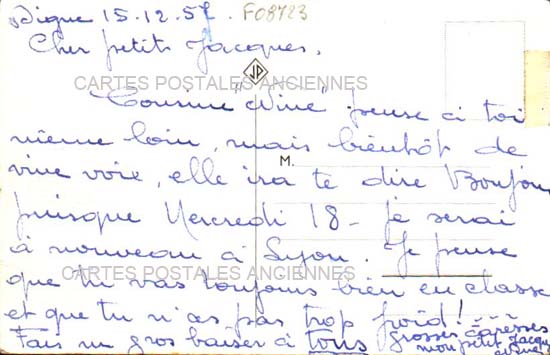 Digne 15.12.57. F08723
Cher petits Jacques.
JD
CARTES POSTALES ANCIENNES
Cousine "Nine" pense à toi
même loin, mais bientôt de
M.
vive voix, elle ira te dire Bonjour
puisque Mercredi 18 - je serai
à nouveau à Lyon. Je pense
CARTES POSTALES ANCIENNES
que tu vas toujours bien en classe
et que tu n'as pas trop froid!
Fais un gros baiser à tous
Grosses caresses
mon petit Jacques